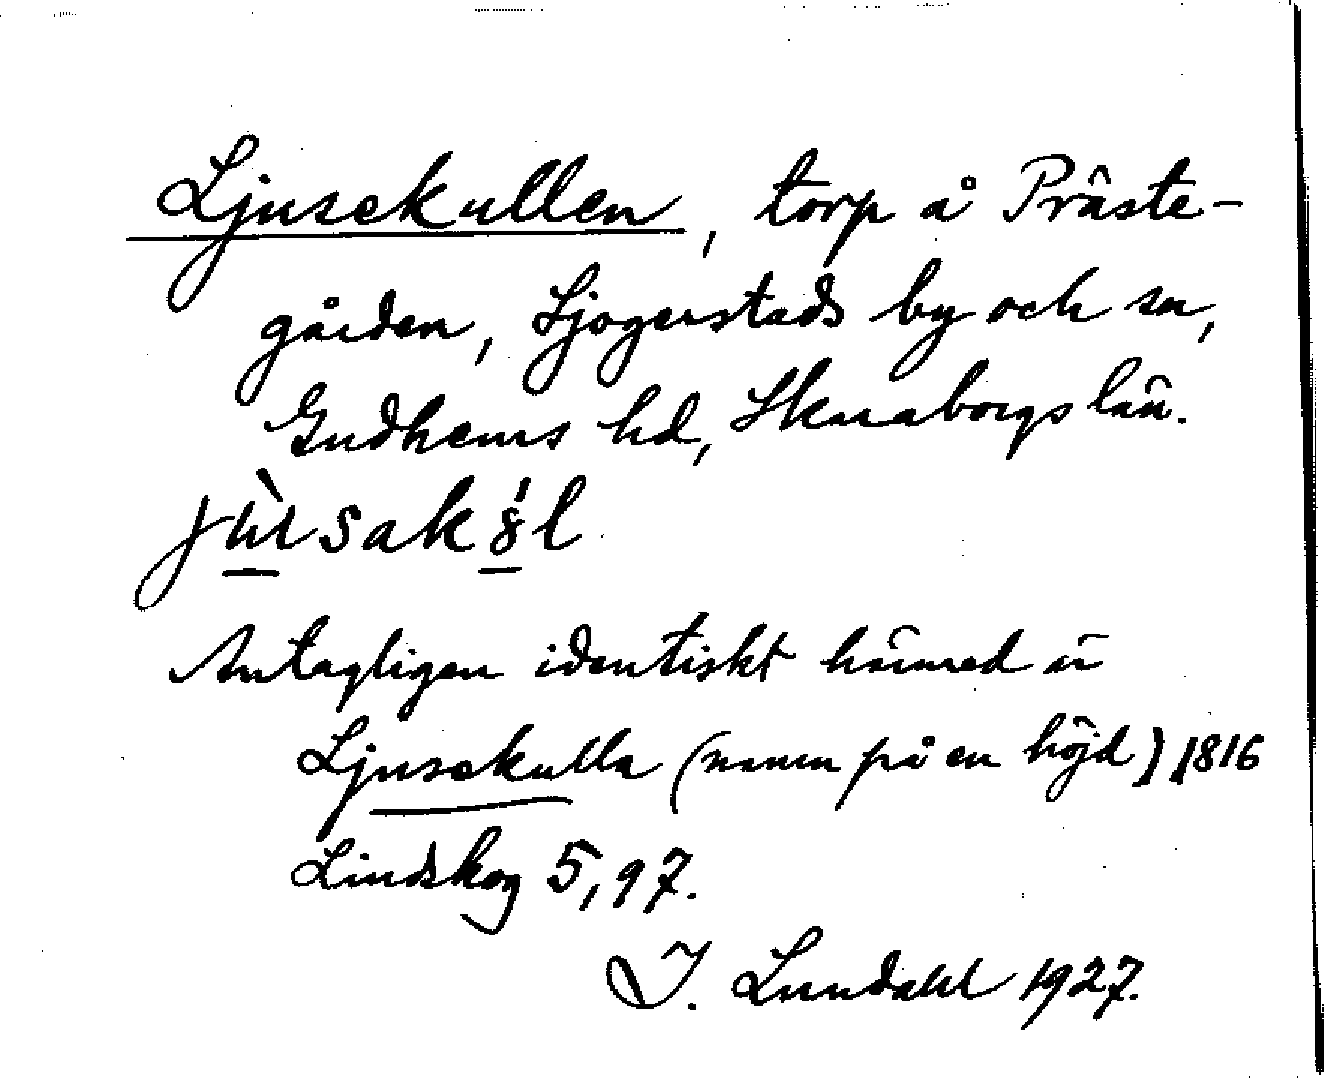 Ljusekullen, torp å Präste-
gården, Sjogerstads by och sn,
Gudhems hd, Skaraborgs län.
Antagligen identiskt härmed är
Ljusekulla (namn på en höjd) 1816
Lindskog 5,97.
I. Lundahl 1927.